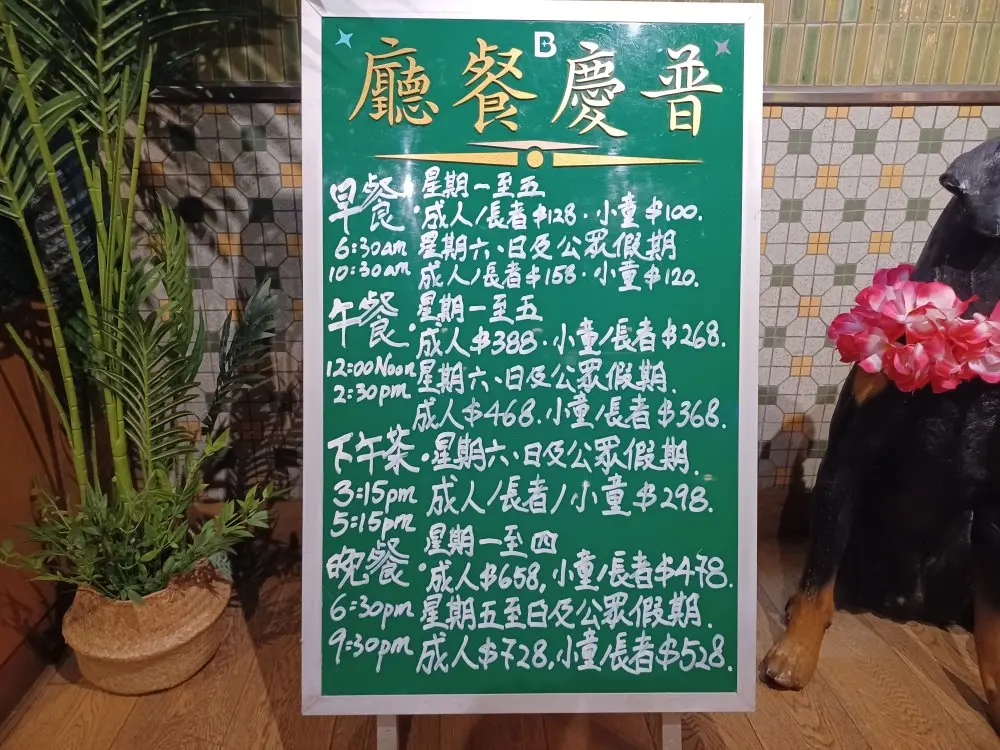 B
廳餐慶普
早餐・星期一至五
成人/長者$128・小童$100.
6:30am 星期六、日及公眾假期
10:30am 成人/長者$158・小童$120.
午餐・星期一至五
成人$388・小童/長者$268.
12:00Noon 星期六、日及公眾假期.
2:30pm
成人$468.小童/長者$368.
下午茶・星期六、日及公眾假期.
3:15pm 成人/長者/小童$298.
5:15pm
晚餐・星期一至四
成人$658,小童/長者$478.
6:30pm 星期五至日及公眾假期.
9:30pm 成人$728,小童/長者$528.